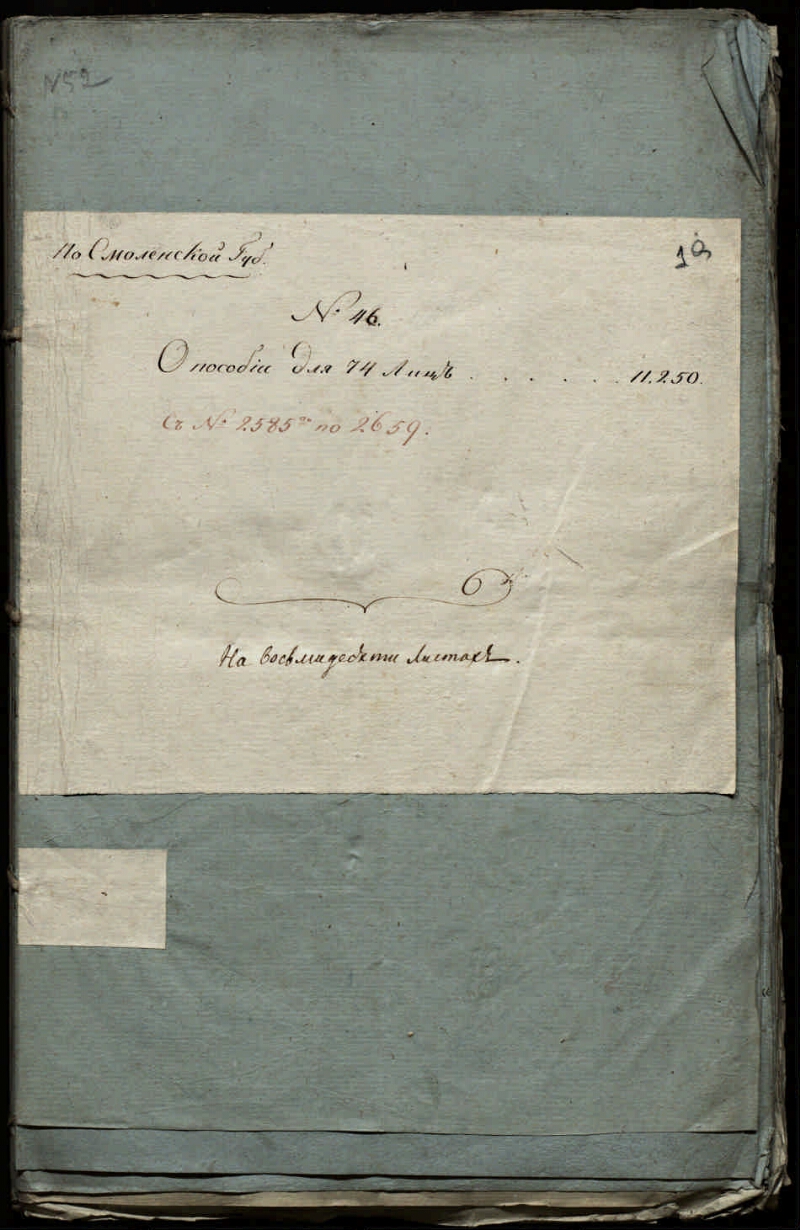 N52
По Смоленской Губ.
№ 46.
О пособіи для 74 Лицъ . . . . . . 11.250.
Съ № 2585го по 2659.
На восьмидесяти Листахъ.